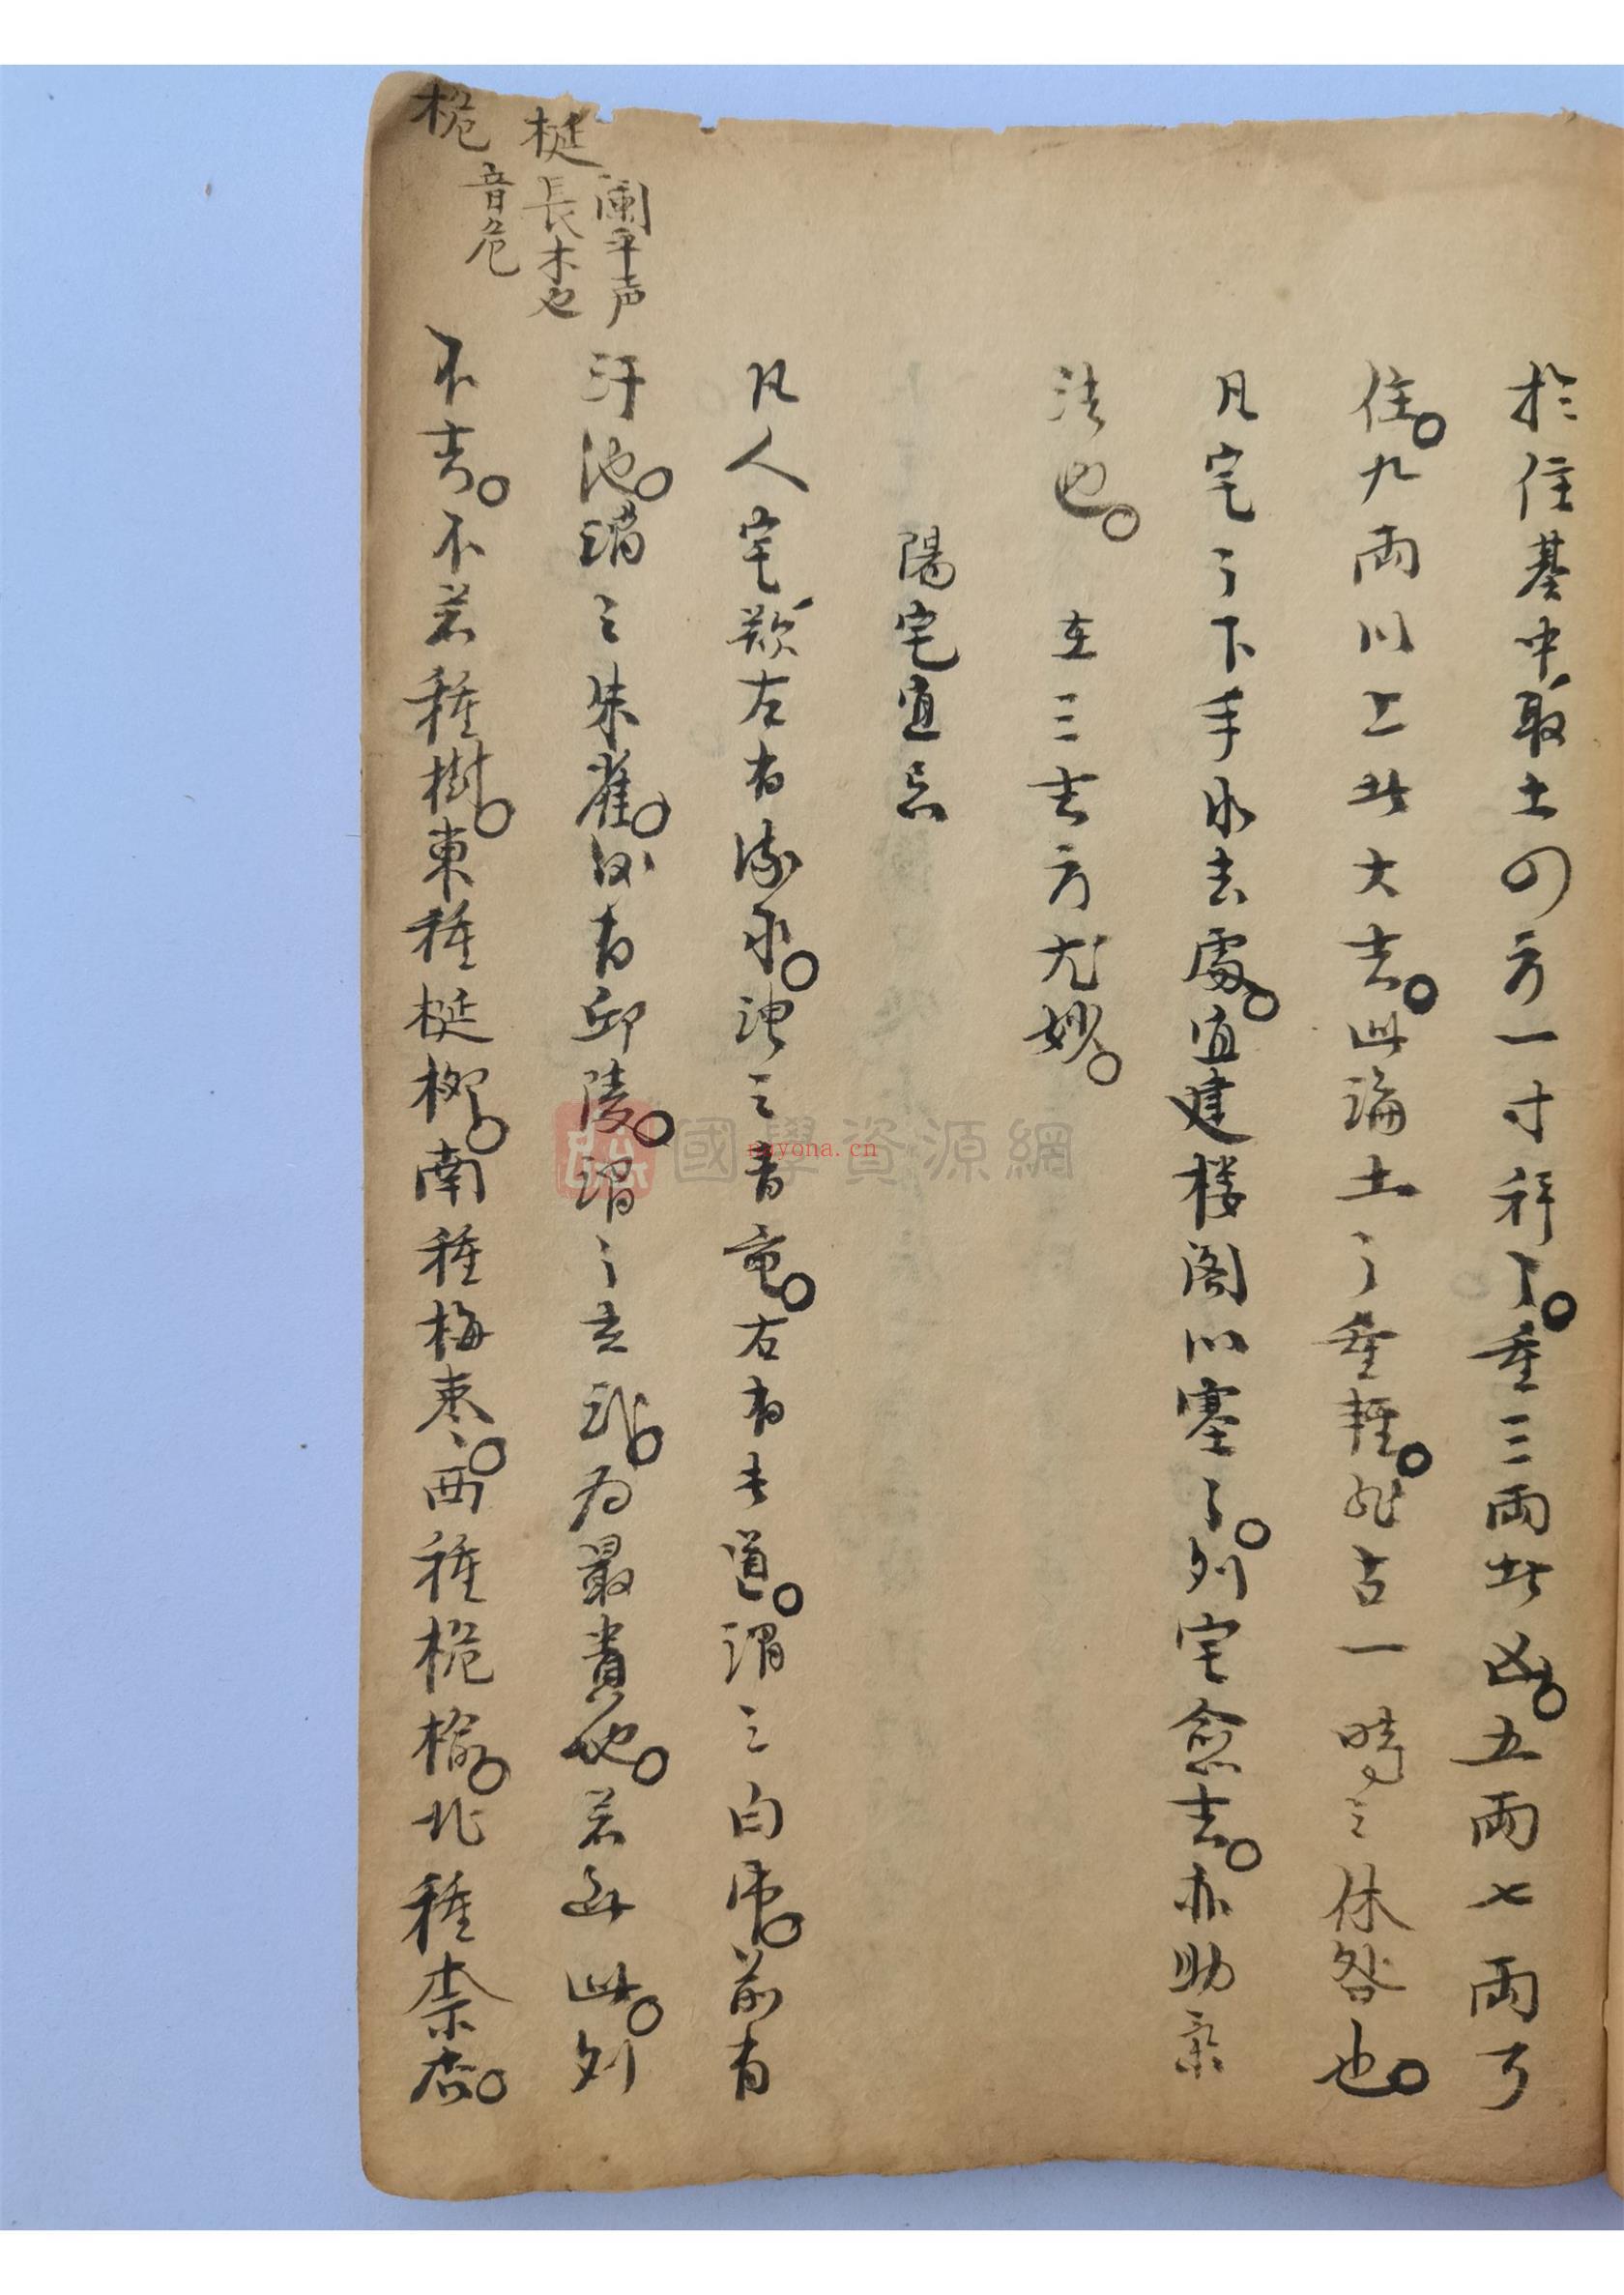 於住基中取土四方一寸秤了重三兩者凶五兩七兩可
住九兩以上者大吉此論土之重輕非占一時之休咎也
凡宅之下手水去處宜建楼阁以塞之則宅愈吉亦助氣
法也　在三吉方尤妙
陽宅宜忌
凡人宅欲左有流水謂之青竜右有長道謂之白虎前有
汙池謂之朱雀後有邱陵謂之玄武為最貴也若無此則
不吉不若種樹東種梃柳南種梅枣西種桅榆北種柰杏
梃 闽平声 長木也
桅 音危
國學資源網
nayona.cn